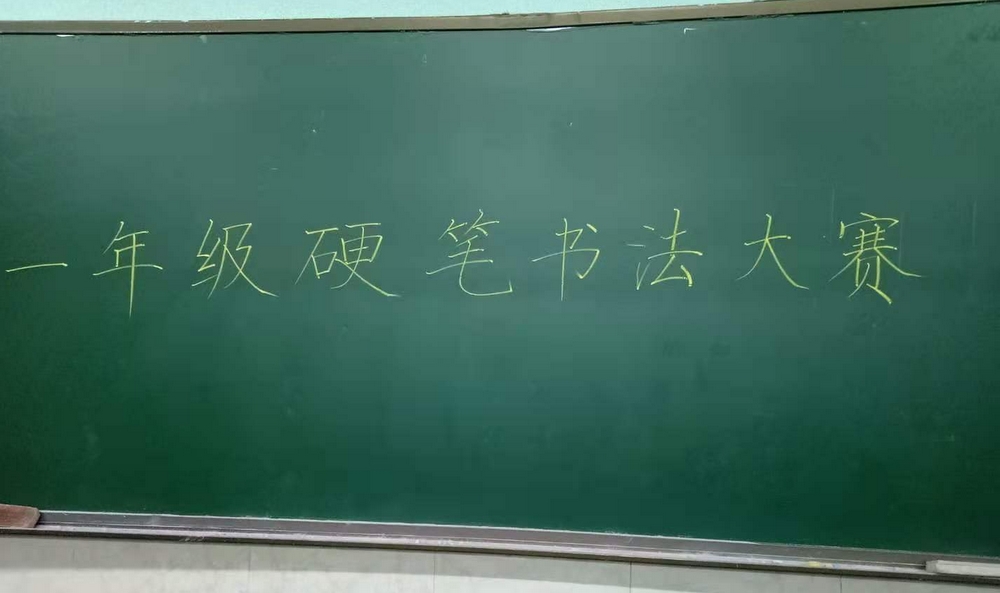 一年级硬笔书法大赛